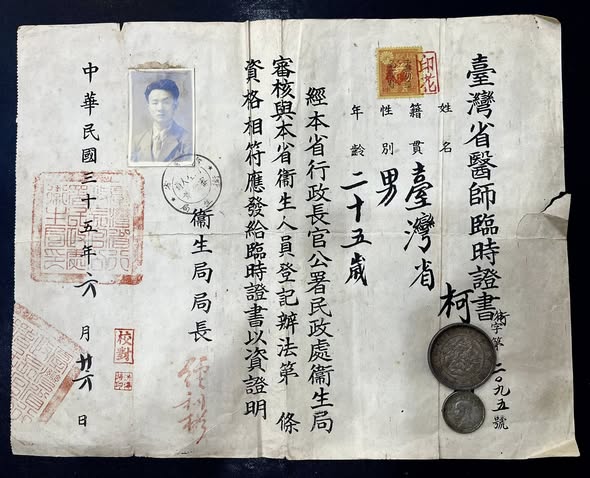 臺灣省醫師臨時證書
字第二〇九五號
姓名 柯
籍貫 臺灣省
性別 男
年齡 二十五歲
印花
經本省行政長官公署民政處衛生局
審核與本省衛生人員登記辦法第 條
資格相符應發給臨時證書以資證明
衛生局局長
經利彬
校對
中華民國三十五年六月廿六日